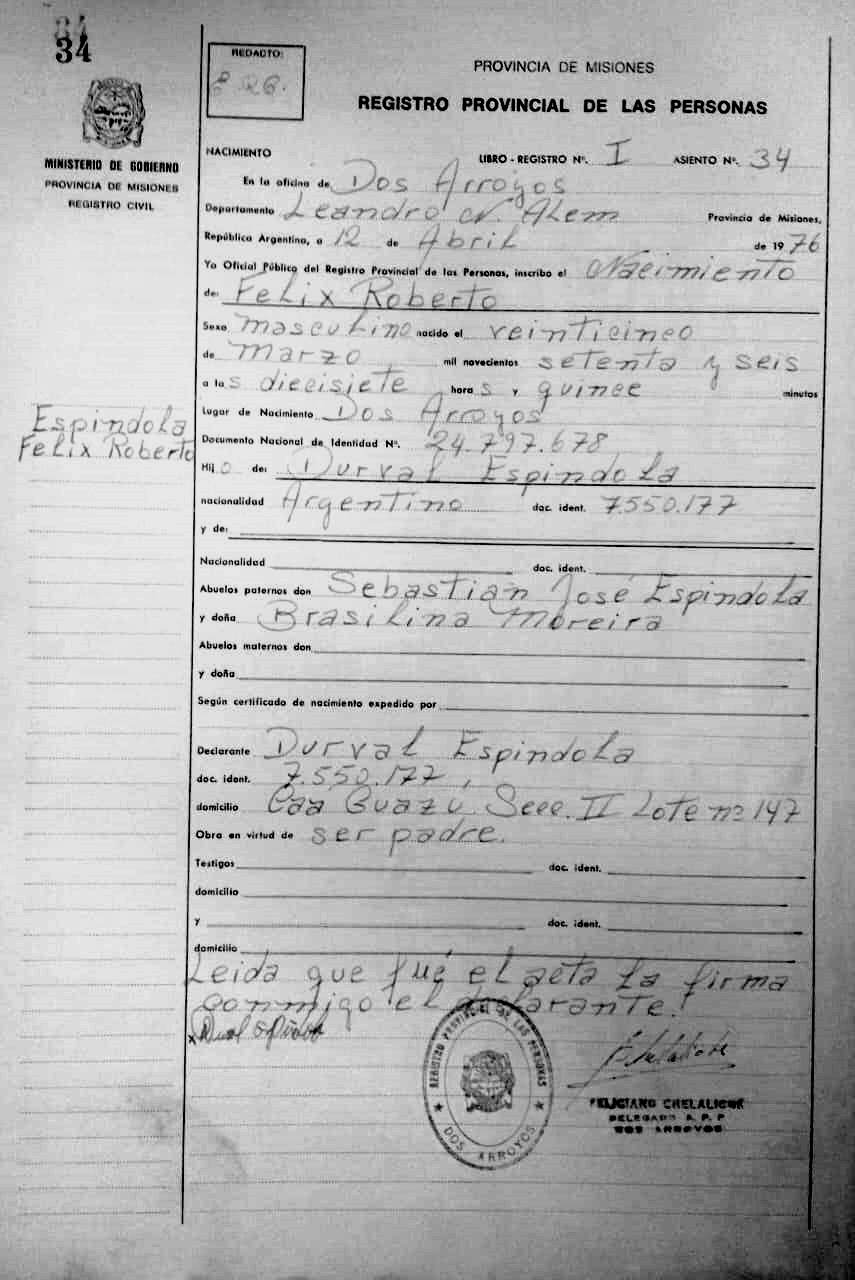 34
34
REDACTO:
PROVINCIA DE MISIONES
REGISTRO PROVINCIAL DE LAS PERSONAS
MINISTERIO DE GOBIERNO
PROVINCIA DE MISIONES
REGISTRO CIVIL
NACIMIENTO LIBRO - REGISTRO Nº. I ASIENTO Nº. 34
En la oficina de Dos Arroyos
Departamento Leandro N. Alem Provincia de Misiones,
República Argentina, a 12 de Abril de 1976
Yo Oficial Público del Registro Provincial de las Personas, inscribo el Nacimiento
de: Felix Roberto
Sexo masculino nacido el veinticinco
de Marzo mil novecientos setenta y seis
a las diecisiete horas y quince minutos
Lugar de Nacimiento Dos Arroyos
Espindola
Felix Roberto
Documento Nacional de Identidad Nº. 24.797.678
Hijo de: Durval Espindola
nacionalidad Argentino doc. ident. 7.550.177
y de:
Nacionalidad doc. ident.
Abuelos paternos don Sebastián José Espindola
y doña Brasilina Moreira
Abuelos maternos don
y doña
Según certificado de nacimiento expedido por
Declarante Durval Espindola
doc. ident. 7.550.177,
domicilio Caa Guazú Secc. II Lote nº 147
Obra en virtud de ser padre.
Testigos doc. ident.
domicilio
y doc. ident.
domicilio
Leida que fué el acta la firma
conmigo el declarante.
REGISTRO PROVINCIAL DE LAS PERSONAS
DOS ARROYOS
FELICIANO CHELALICHE
DELEGADO R. P. P
DOS ARROYOS